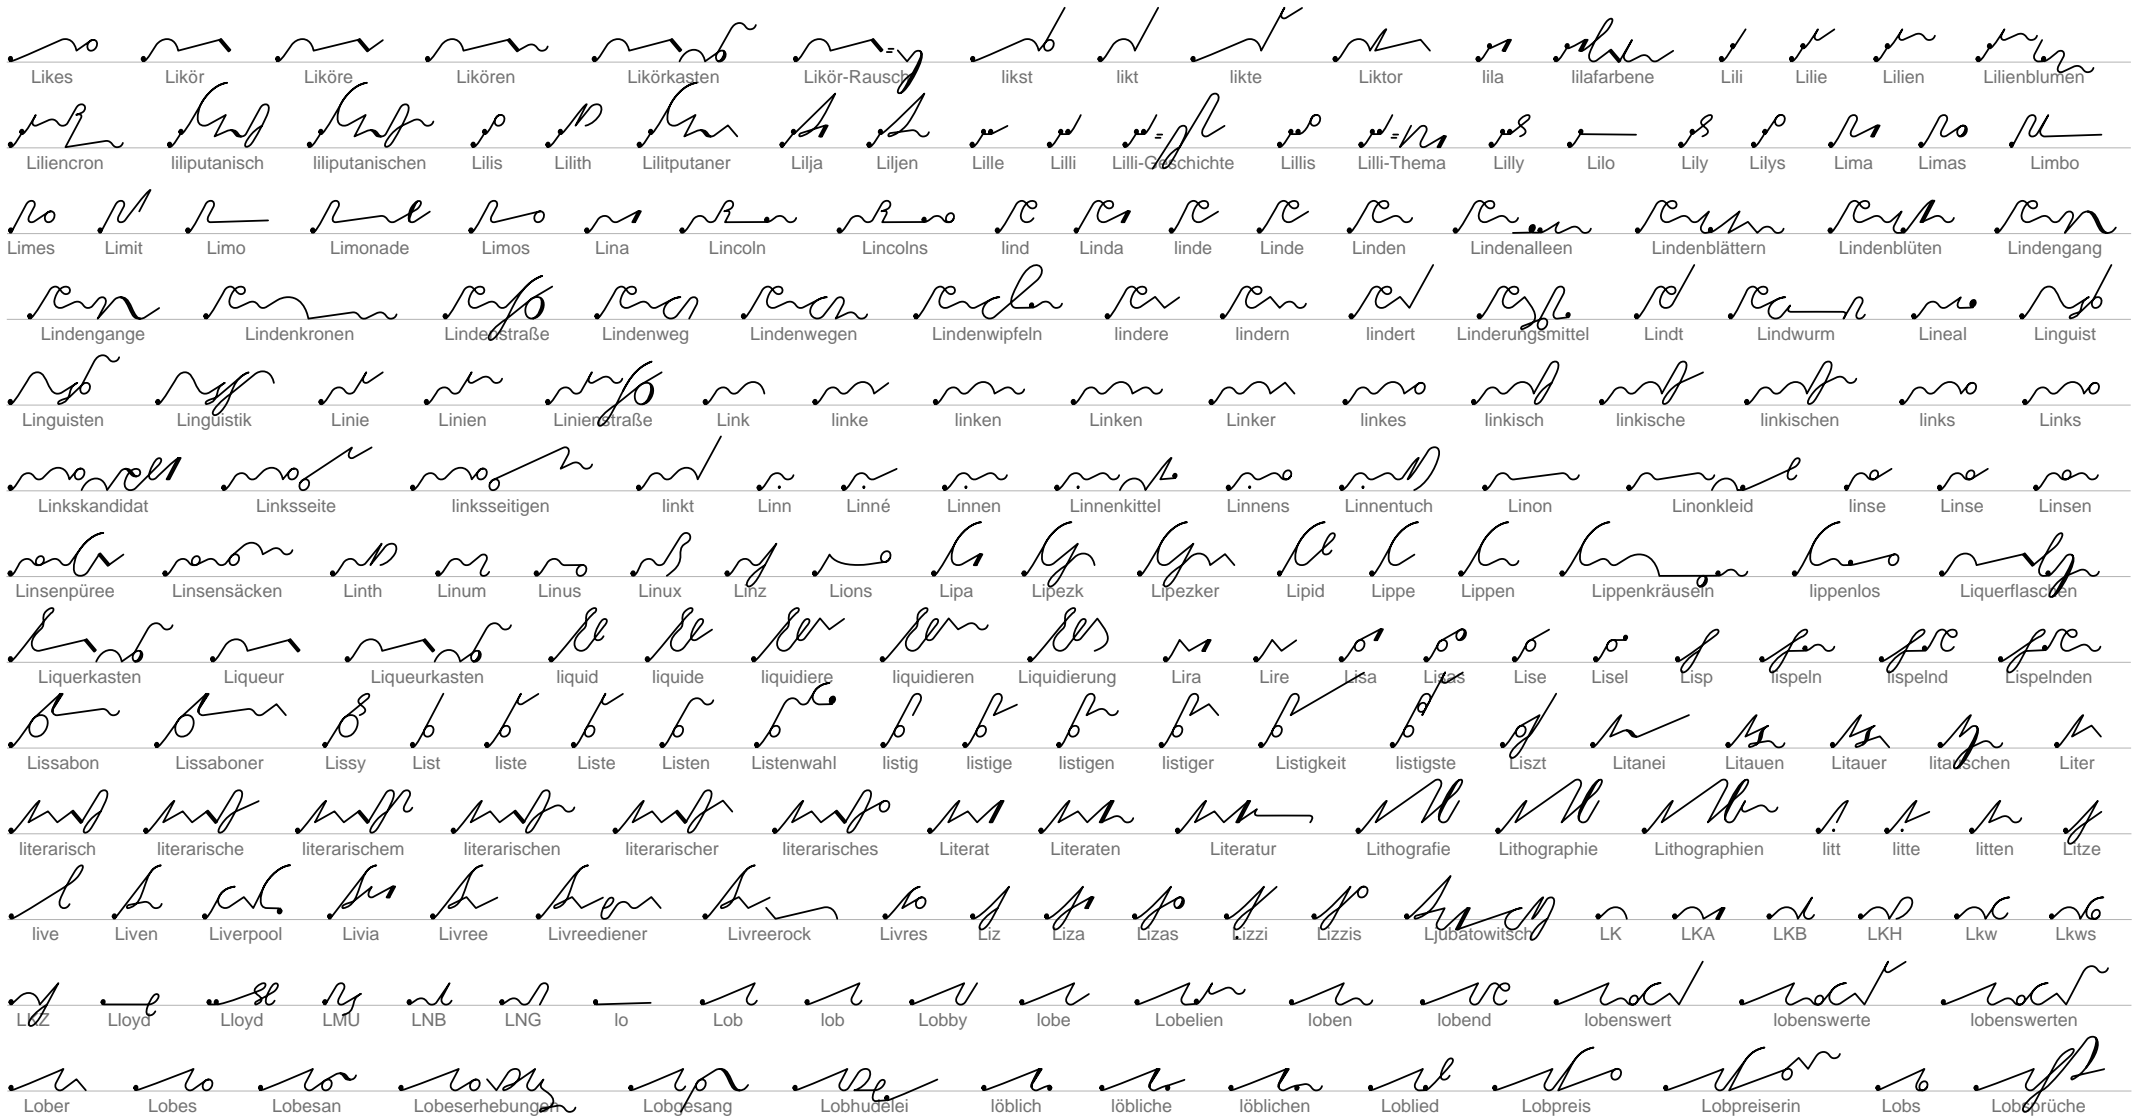 Likes Likör Liköre Likören Likörkasten Likör-Rausch likst likt likte Liktor lila lilafarbene Lili Lilie Lilien Lilienblumen
Liliencron liliputanisch liliputanischen Lilis Lilith Lilitputaner Lilja Liljen Lille Lilli Lilli-Geschichte Lillis Lilli-Thema Lilly Lilo Lily Lilys Lima Limas Limbo
Limes Limit Limo Limonade Limos Lina Lincoln Lincolns lind Linda linde Linde Linden Lindenalleen Lindenblättern Lindenblüten Lindengang
Lindengange Lindenkronen Lindenstraße Lindenweg Lindenwegen Lindenwipfeln lindere lindern lindert Linderungsmittel Lindt Lindwurm Lineal Linguist
Linguisten Linguistik Linie Linien Linienstraße Link linke linken Linken Linker linkes linkisch linkische linkischen links Links
Linkskandidat Linksseite linksseitigen linkt Linn Linné Linnen Linnenkittel Linnens Linnentuch Linon Linonkleid linse Linse Linsen
Linsenpüree Linsensäcken Linth Linum Linus Linux Linz Lions Lipa Lipezk Lipezker Lipid Lippe Lippen Lippenkräuseln lippenlos Liquerflaschen
Liquerkasten Liqueur Liqueurkasten liquid liquide liquidiere liquidieren Liquidierung Lira Lire Lisa Lisas Lise Lisel Lisp lispeln lispelnd Lispelnden
Lissabon Lissaboner Lissy List liste Liste Listen Listenwahl listig listige listigen listiger Listigkeit listigste Liszt Litanei Litauen Litauer litauischen Liter
literarisch literarische literarischem literarischen literarischer literarisches Literat Literaten Literatur Lithografie Lithographie Lithographien litt litte litten Litze
live Liven Liverpool Livia Livree Livreediener Livreerock Livres Liz Liza Lizas Lizzi Lizzis Ljubatowitsch LK LKA LKB LKH Lkw Lkws
LKZ Lloyd Lloyd LMU LNB LNG lo Lob lob Lobby lobe Lobelien loben lobend lobenswert lobenswerte lobenswerten
Lober Lobes Lobesan Lobeserhebungen Lobgesang Lobhudelei löblich löbliche löblichen Loblied Lobpreis Lobpreiserin Lobs Lobsprüche